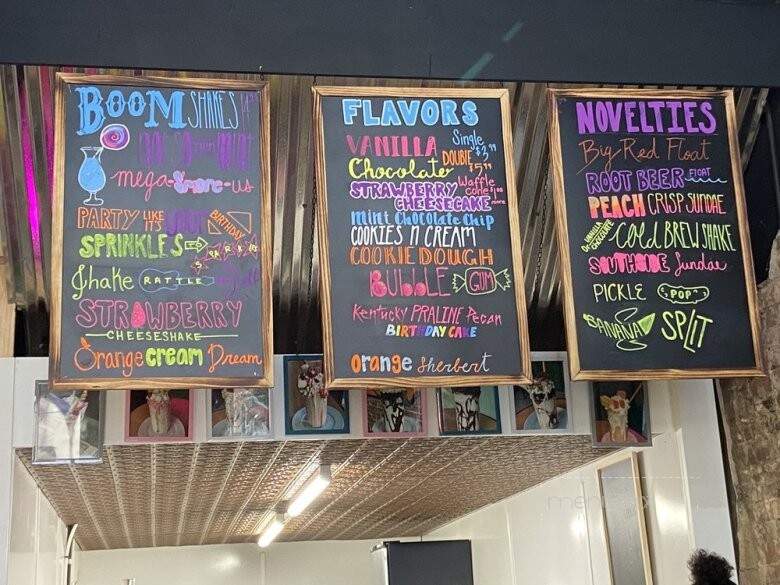 BOOM SHAKES
mega-Smore-us
PARTY LIKE IT'S YOUR BIRTHDAY
SPRINKLES
Shake RATTLE
STRAWBERRY
CHEESESHAKE
Orange cream Dream
FLAVORS
VANILLA
Chocolate
STRAWBERRY
CHEESECAKE
Single $3.99
DOUBLE $5.99
Waffle cone $1.00 more
mint Chocolate Chip
COOKIES N CREAM
COOKIE DOUGH
BUBBLE GUM
Kentucky PRALINE Pecan
BIRTHDAY CAKE
Orange Sherbert
NOVELTIES
Big Red Float
ROOT BEER FLOAT
PEACH CRISP SUNDAE
Or VANILLA CHOCOLATE COLD BREW SHAKE
SOUTHSIDE Sundae
PICKLE POP
BANANA SPLIT